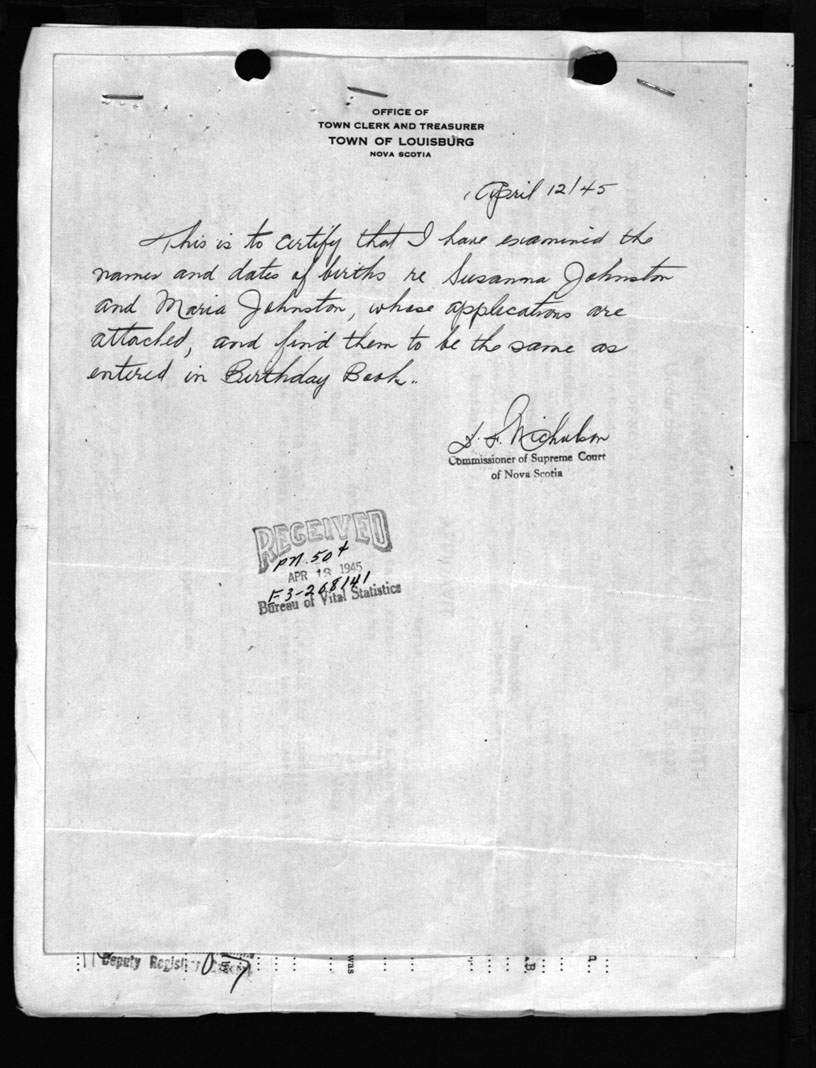 OFFICE OF
TOWN CLERK AND TREASURER
TOWN OF LOUISBURG
NOVA SCOTIA
April 12/45
This is to certify that I have examined the
names and dates of births re Susanna Johnston
and Maria Johnston, whose applications are
attached, and find them to be the same as
entered in Birthday Book..
Nicholson
Commissioner of Supreme Court
of Nova Scotia
RECEIVED
APR 13 1945
F3-268141
Bureau of Vital Statistics
Deputy
was